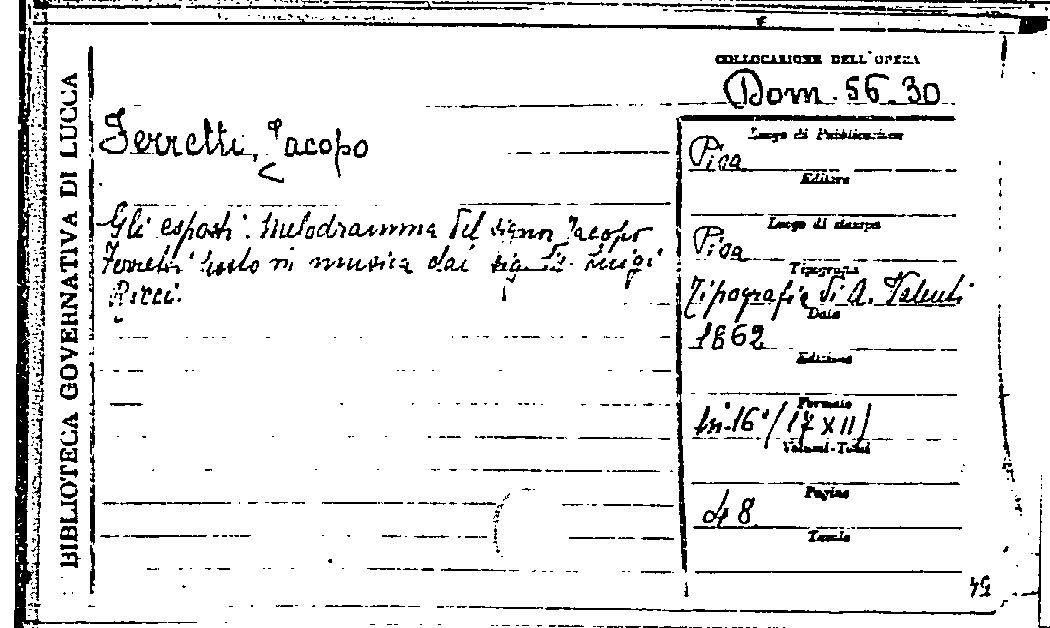 BIBLIOTECA GOVERNATIVA DI LUCCA
COLLOCAZIONE DELL'OPERA
Dom. 56.30
Ferretti, Jacopo
Gli esposti. Melodramma del signor Jacopo
Ferretti posto in musica dai sig. Luigi
Ricci.
Luogo di Pubblicazione
Pisa
Editore
Luogo di stampa
Pisa
Tipografia
Tipografia di A. Valenti
Data
1862
Edizione
Formato
In-16° (17 X 11)
Volumi-Tomi
Pagine
48
Tavole
54